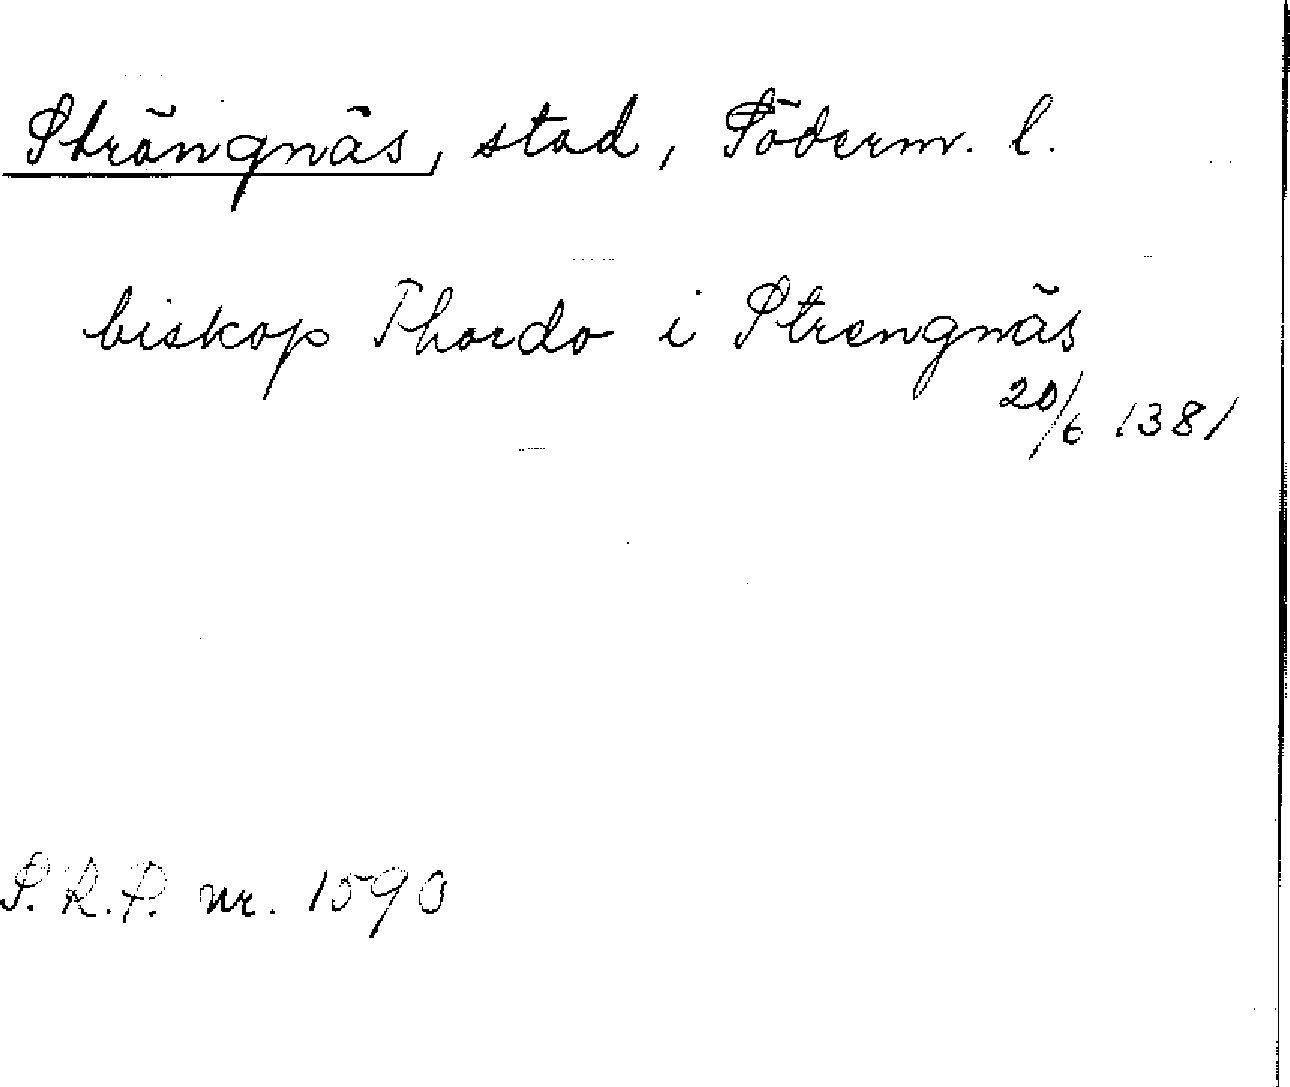 Strängnäs, stad, Söderm. l.
biskop Thordo i Strengnäs
20/6 1381
S.R.P. nr. 1590